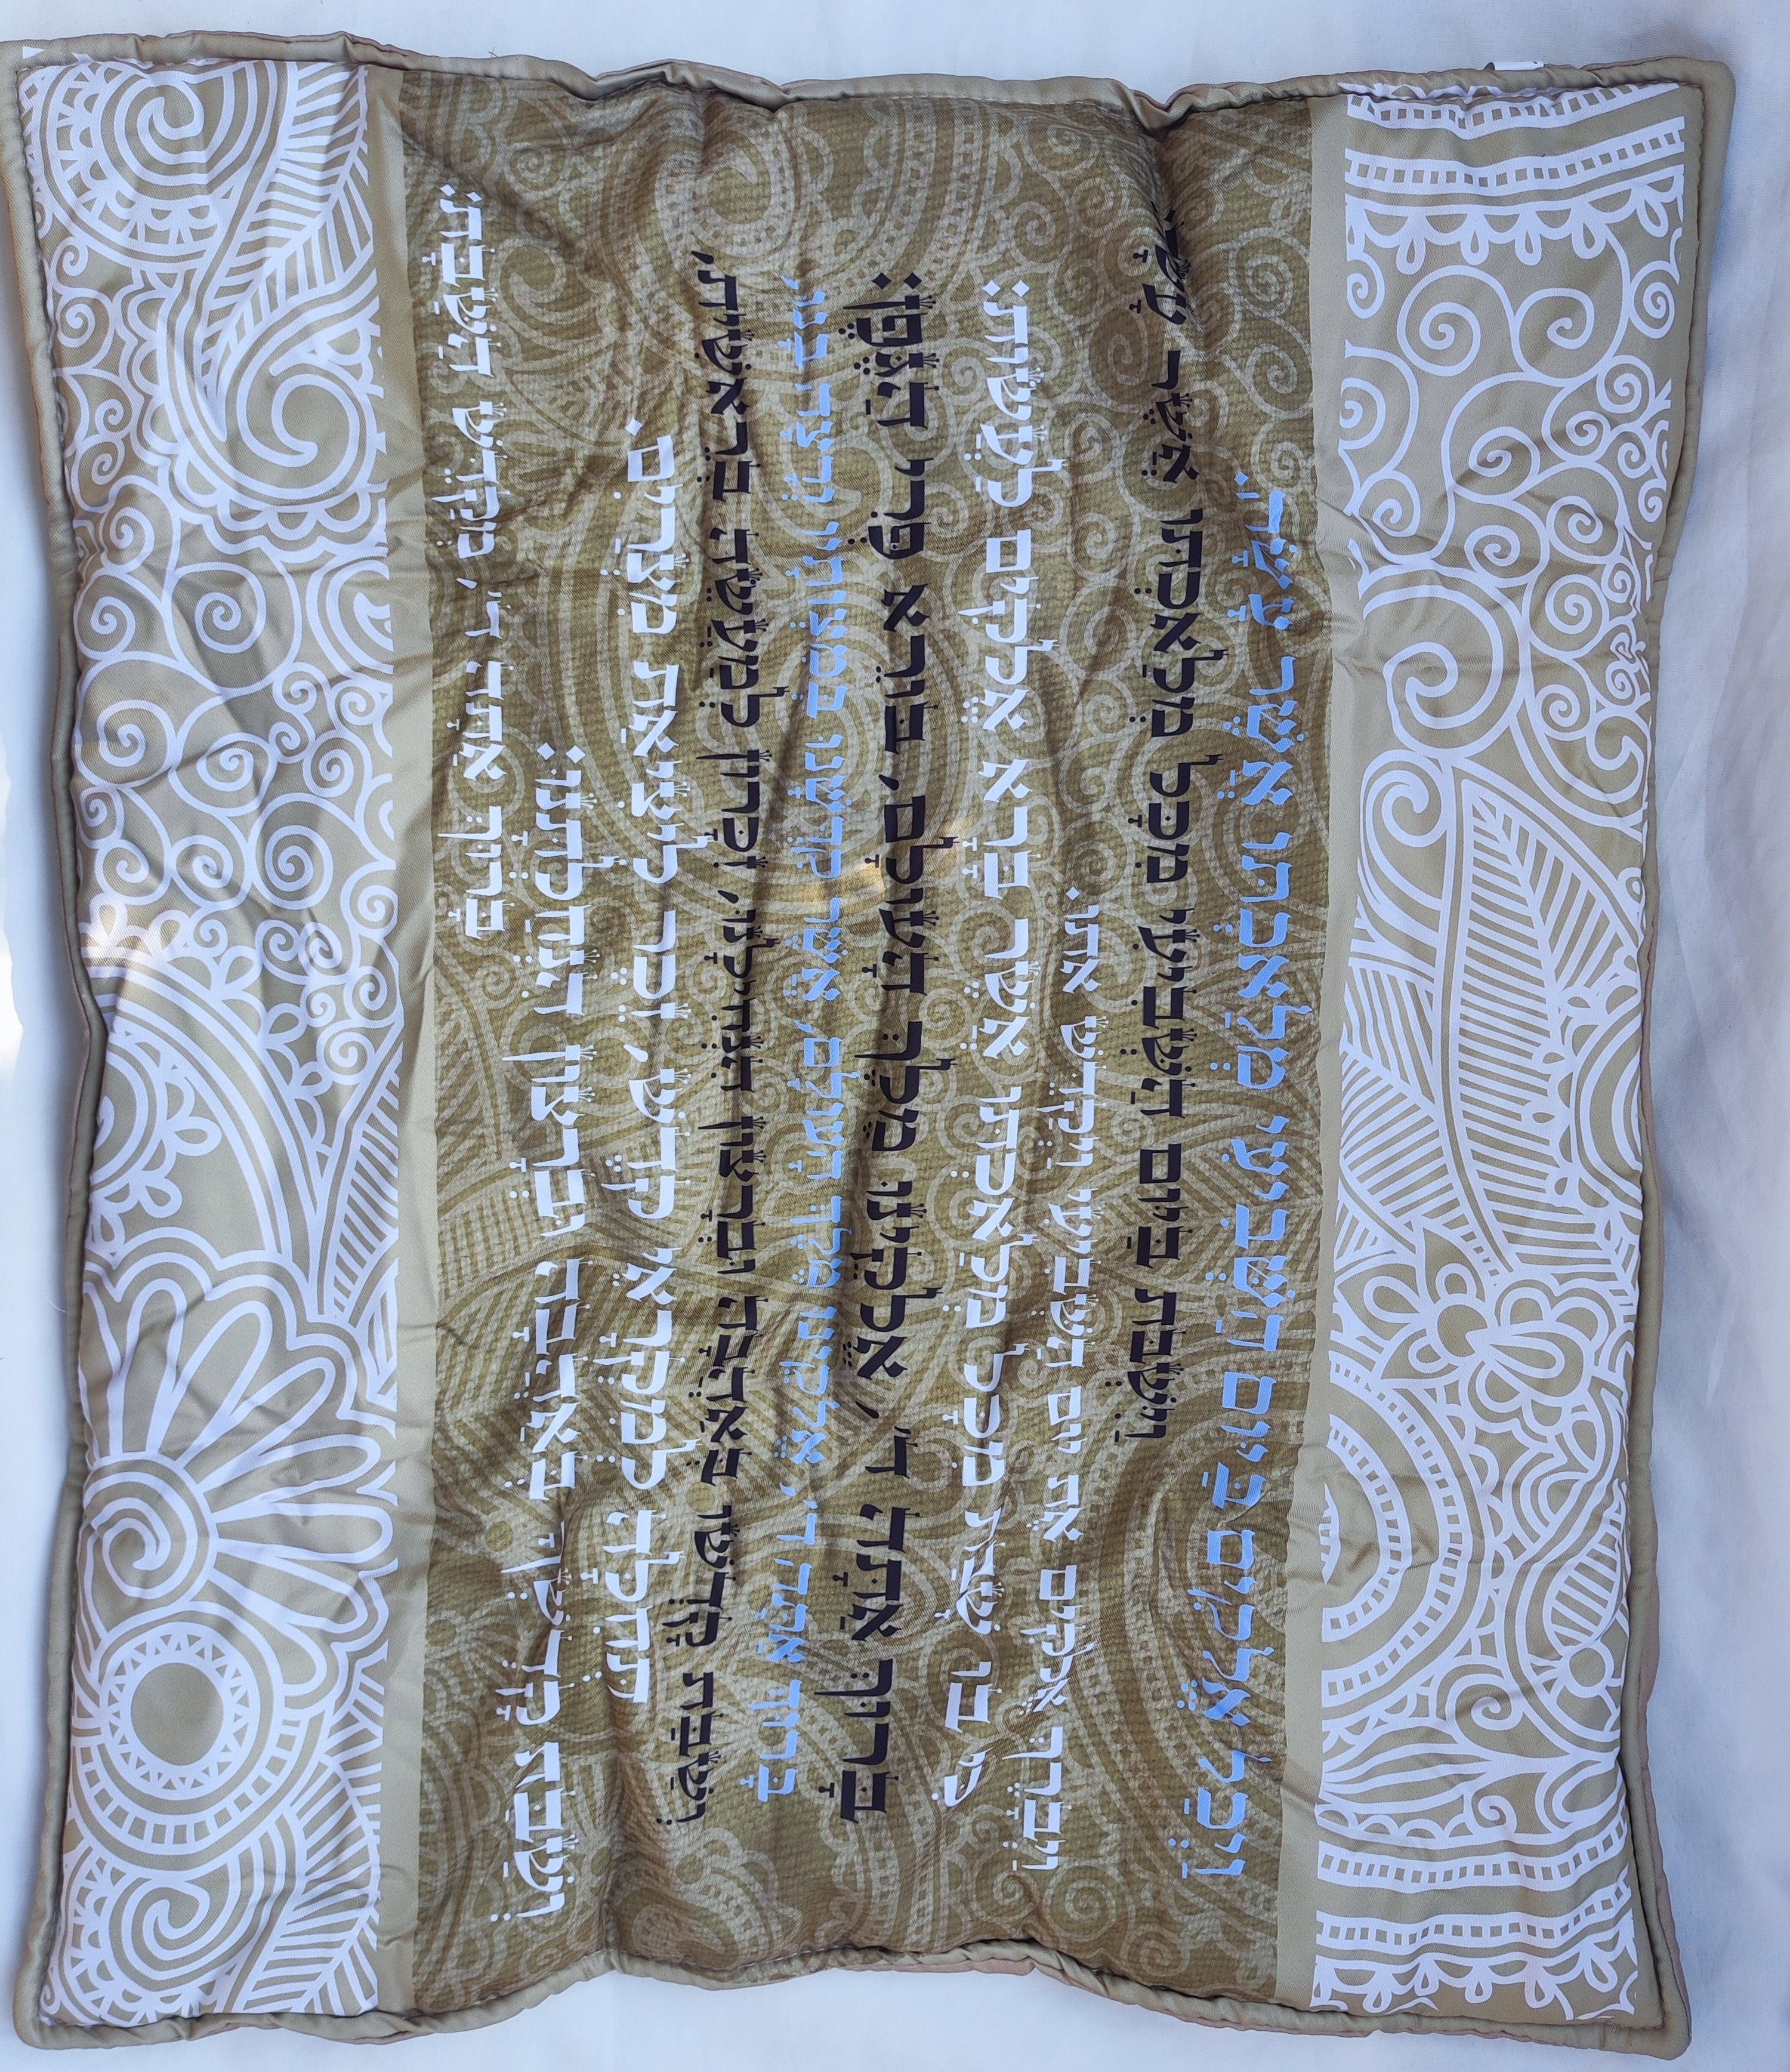 וַיְכַל אֱלֹקִים בַּיוֹם הַשְּׁבִיעִי מְלַאכְתּוֹ אֲשֶׁר עָשָׂה.
וַיִּשְׁבֹּת בַּיוֹם הַשְּׁבִיעִי מִכָּל מְלַאכְתּוֹ אֲשֶׁר עָשָׂה
וַיְבָרֶךְ אֱלֹקִים אֶת יוֹם הַשְּׁבִיעִי וַיְקַדֵּשׁ אֹתוֹ.
כִּי בוֹ שָׁבַת מִכָּל מְלַאכְתּוֹ אֲשֶׁר בָּרָא אֱלֹקִים לַעֲשׂוֹת:
בָּרוּךְ אַתָּה ה', אֱלֹקֵינוּ מֶלֶךְ הָעוֹלָם, בּוֹרֵא פְּרִי הַגֶּפֶן:
בָּרוּךְ אַתָּה ה', אֱלֹקֵינוּ מֶלֶךְ הָעוֹלָם, אֲשֶׁר קִדְּשָׁנוּ בְּמִצְוֹתָיו וְרָצָה בָנוּ,
וְשַׁבַּת קָדְשׁוֹ בְּאַהֲבָה וּבְרָצוֹן הִנְחִילָנוּ, זִכָּרוֹן לְמַעֲשֵׂה בְרֵאשִׁית,
תְּחִלָּה לְמִקְרָאֵי קֹדֶשׁ, זֵכֶר לִיצִיאַת מִצְרָיִם.
וְשַׁבַּת קָדְשְׁךָ בְּאַהֲבָה וּבְרָצוֹן הִנְחַלְתָּנוּ:
בָּרוּךְ אַתָּה ה', מְקַדֵּשׁ הַשַּׁבָּת: